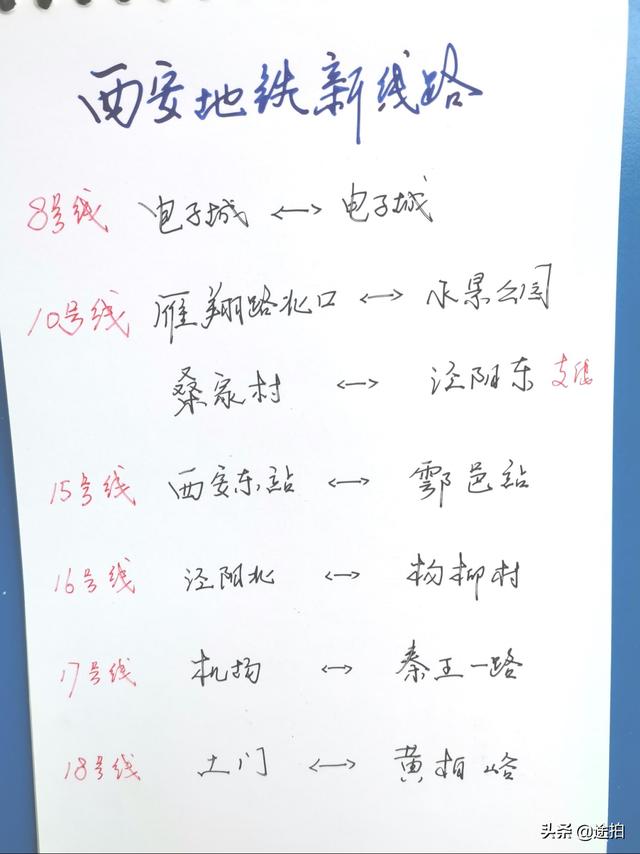 西安地铁新线路
8号线 电子城 ⟷ 电子城
10号线 雁翔路北口 ⟷ 水景公园
桑家村 ⟷ 泾阳东 支线
15号线 西安东站 ⟷ 鄠邑站
16号线 泾阳北 ⟷ 杨柳村
17号线 机场 ⟷ 秦王一路
18号线 土门 ⟷ 黄柏峪
头条 @途拍